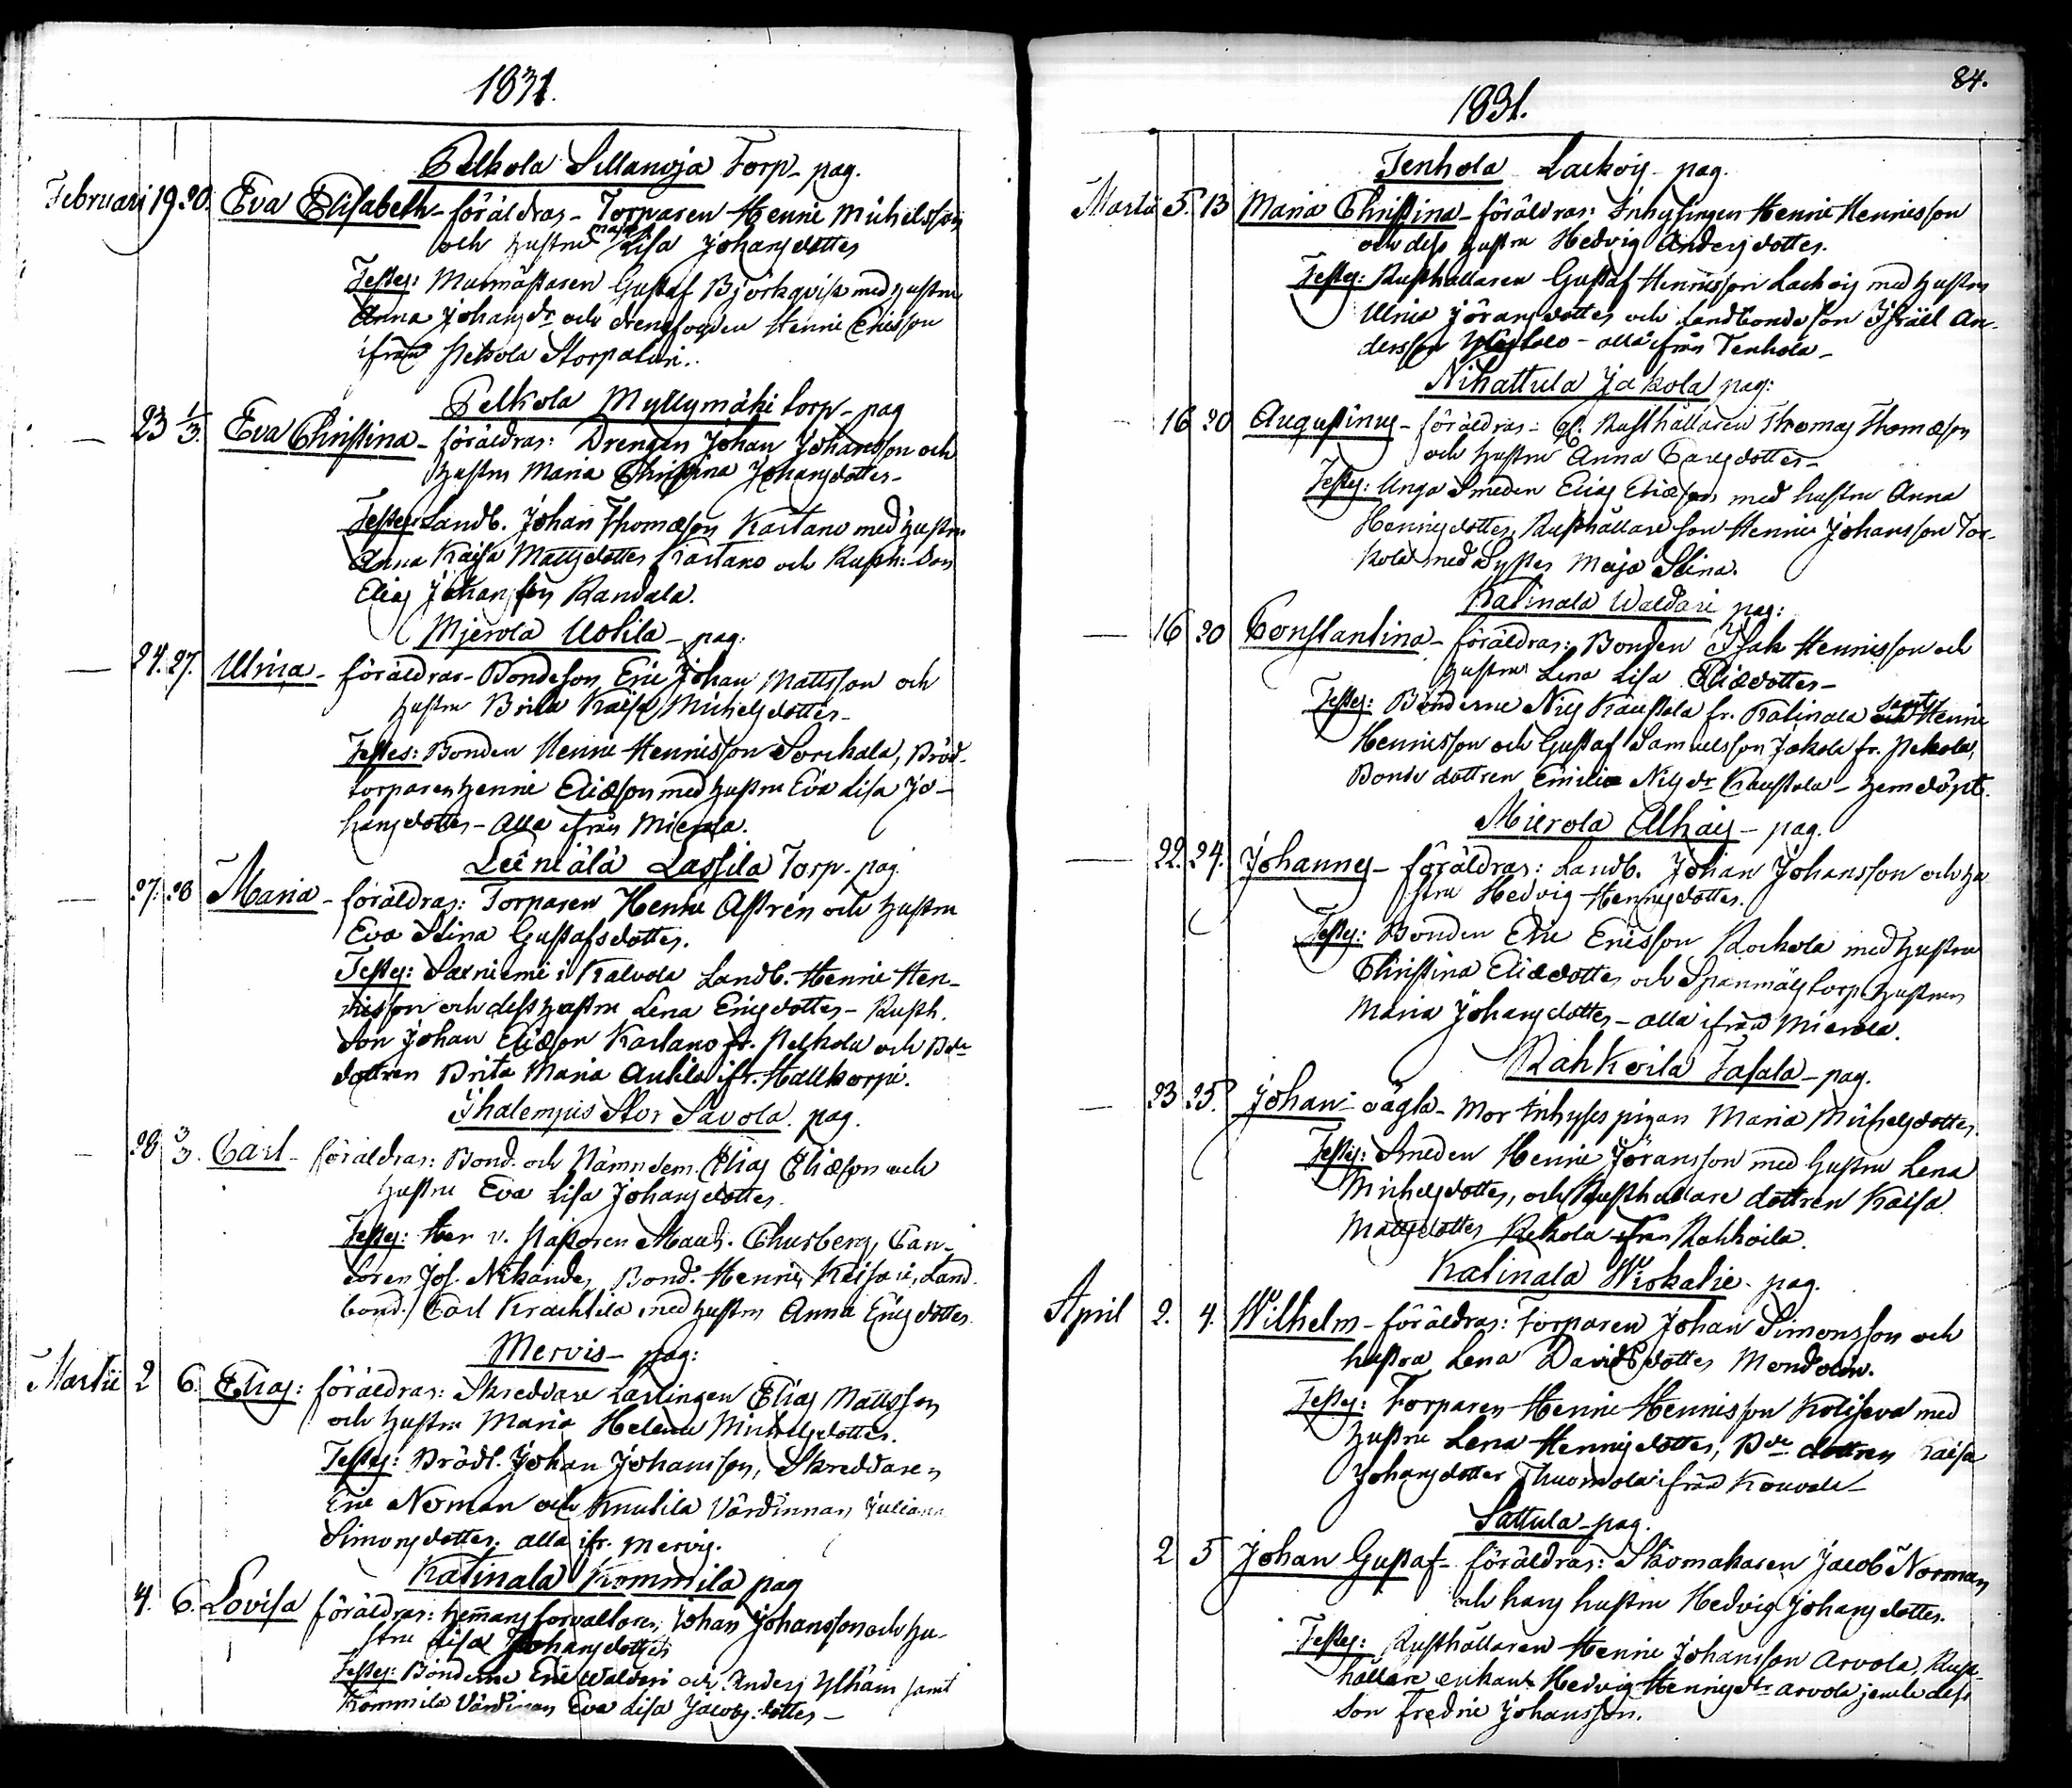 1831.
Pelkola Sillanoja Torp - pag.
Februari 19 20. Eva Elisabeth - föräldrar - Torparen Henric Michelsson
och hustru Maja Lisa Johansdotter
Testes: Murmästaren Gustaf Björkqvist med hustru
Anna Johansdr och drengfogden Henric Ericsson
ifrån Pekola Storpaturi.
Pelkola Myllymäki torp - pag
— 23 1/3. Eva Christina - föräldrar: Drengen Johan Johansson och
hustru Maria Christina Johansdotter -
Testes: Landb. Johan Thomasson Kartano med hustru
Anna Kaisa Mattsdotter Kartano och Rusth: Son
Elias Johansson Randala.
Mjerola Uotila - pag.
— 24. 27. Ulrica - föräldrar - Bondeson Eric Johan Mattsson och
hustru Brita Kaisa Michelsdotter -
Testes: Bonden Henric Hennisson Sorrhala, Bröd-
torparen Henric Eliæson med hustru Eva Lisa Jo-
hansdotter - Alla ifrån Mierola.
Leiniälä Lassila Torp - pag.
— 27. 28 Maria - föräldrar: Torparen Henric Astrén och hustru
Eva Stina Gustafsdotter.
Testes: Saarniemi i Kalvola Landb. Henric Hen-
nisson och dess hustru Lena Ericsdotter - Rusth.
Son Johan Eliæson Kartano fr. Pelkola och Bde
dottren Brita Maria Autila ifr. Hattkorpi.
Ihalempis Stor Savola. pag.
— 28 3/3. Carl - föräldrar: Bond. och Nämndem. Elias Eliæson och
hustru Eva Lisa Johansdotter.
Testes: Herr v. Pastoren Maur. Thusberg, Can-
toren Joh. Nikander, Bond. Henric Keisari, Land-
bond. Carl Krackkila med hustru Anna Ericsdotter
Mervis - pag:
Martii 2 6. Elias: föräldrar: Skreddare Lärlingen Elias Mattsson
och hustru Maria Helena Michelsdotter.
Testes: Brödt. Johan Johansson, Skreddaren
Eric Norman och Knutila Värdinnan Juliana
Simonsdotter. alla ifr. Mervis.
Katinala Kommila pag
4. 6. Lovisa föräldrar: hemmans förvaltaren Johan Johansson och hu-
stru Lisa Johansdotter
Testes: Bönderne Eric Walderi och Anders Ylhäin samt
Kommila Värdinnan Eva Lisa Jacobs:dotter -
84.
1831.
Tenhola Laehvij - pag.
Martii 5. 13 Maria Christina - föräldrar: Inhysingen Henric Henricsson
och dess hustru Hedvig Andersdotter.
Testes: Rusthållaren Gustaf Hennisson Laehvij med hustru
Ulrica Jöransdotter och Landbonde son Israël An-
dersson - alla ifrån Tenhola -
Nihattula Jakola pag:
— 16 20 Augustinus - föräldrar - gl. Rusthållaren Thomas Thomæson
och hustru Anna Carlsdotter -
Testes: Unga Smeden Elias Eliæson med hustru Anna
Henricsdotter, Rusthållare son Henric Johansson Tor-
kola med Syster Maja Stina.
Katinala Waldari pag:
— 16 20 Constantina - föräldrar: Bonden Isak Hennisson och
hustru Lena Lisa Eliædotter -
Testes: Bönderne Nils Kaustola fr. Katinala samt Henric
Hennisson och Gustaf Samuelsson Jakola fr. Pekola,
Bonde dottren Emilia Nilsdr Kaustola - hemdöpt.
Mierola Alhais - pag.
— 22. 24. Johannes - föräldrar: Landb. Johan Johansson och hu
stru Hedvig Henricsdotter.
Testes: Bonden Eric Ericsson Rockola med hustru
Christina Eliædotter och Spånmäs torp. hustrun
Maria Johansdotter - alla ifrån Mierola.
Rahkoila Tasala - pag.
— 23 25. Johan - oägta - Mor Inhyses pigan Maria Michelsdotter.
Testes: Smeden Henric Jöransson med hustru Lena
Michelsdotter, och Rusthållare dottren Kaisa
Mattsdotter Kekola ifrån Rahkoila.
Katinala Wiskalie - pag.
April 2. 4. Wilhelm - föräldrar: Torparen Johan Simonsson och
hustru Lena Davidsdotter Mondolin.
Testes: Torparen Henric Hennisson Kotiseva med
hustru Lena Henricsdotter, Bde dottren Kaisa
Johansdotter Thuomola ifrån Kouvala -
Sattula - pag.
2 5 Johan Gustaf - föräldrar: Skomakaren Jacob Norman
och hans hustru Hedvig Johansdotter.
Testes: Rusthållaren Henric Johansson Arvola, Rust-
hållare enkan Hedvig Henricsdr Arvola jemte dess
son Fredric Johansson.